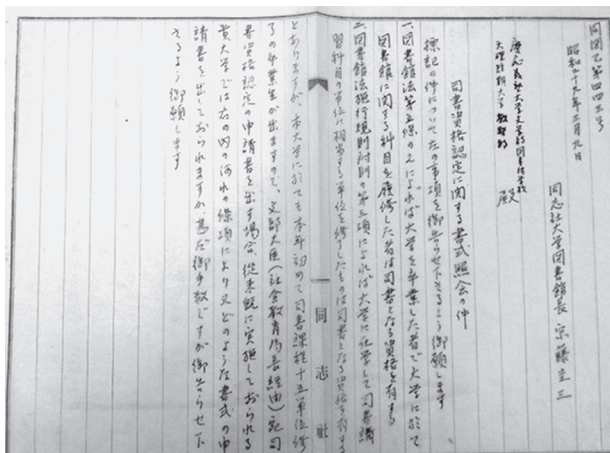 同図乙第四四三号
昭和二十九年三月九日
慶応義塾大学文学部図書館学校
天理短期大学教務部 殿
同志社大学図書館長 宗藤圭三
司書資格認定に関する書式照会の件
標記の件について左の事項を御告らせ下さるよう御願します
一、図書館法第五條の二によれば大学を卒業した者で大学に於て
図書館に関する科目を履修した者は司書となる資格を有する
二、図書館法施行規則附則の第三項によれば大学に在学して司書講
習科目の単位に相当する単位を修了したものは司書となる資格を有する
とありますが、本大学に於ても本年初めて司書課程十五単位修
了の卒業生が出ますので、文部大臣(社会教育局長経由)宛司
書資格認定の申請書を出す場合、従来既に実施しておられる
貴大学では右の内の何れの條項により又どのような書式の申
請書を出しておられますか甚だ御手数ですが御告らせ下
さるよう御願します
同志社